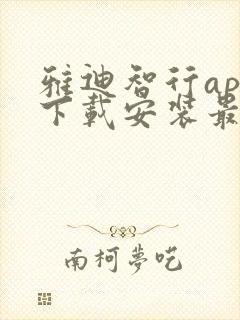 雅迪智行ap
下载安装最
南柯夢呓